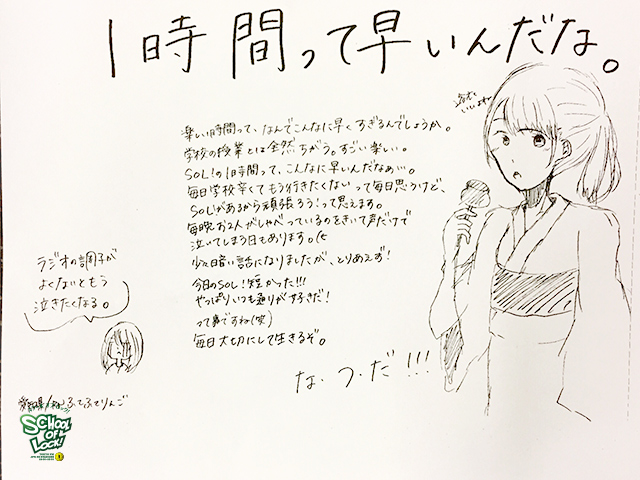 1時間って早いんだな。
楽しい時間って、なんでこんなに早くすぎるんでしょうか。
学校の授業とは全然ちがう。すごい楽しい。
SOL!の1時間って、こんなに早いんだなぁ…。
毎日学校辛くてもう行きたくないって毎日思うけど、
SOL!があるから頑張ろう!って思えます。
毎晩お2人がしゃべっているのをきいて声だけで
泣いてしまう日もあります。
少々暗い話になりましたが、とりあえず!
今日のSOL!短かった!!!
やっぱりいつも通りが好きだ!
って事ですね(笑)
毎日大切にして生きるぞ。
な・つ・だ!!!
ラジオの調子が
よくないともう
泣きたくなる。
ふてふてりんご
SCHOOL
OF
LOCK!